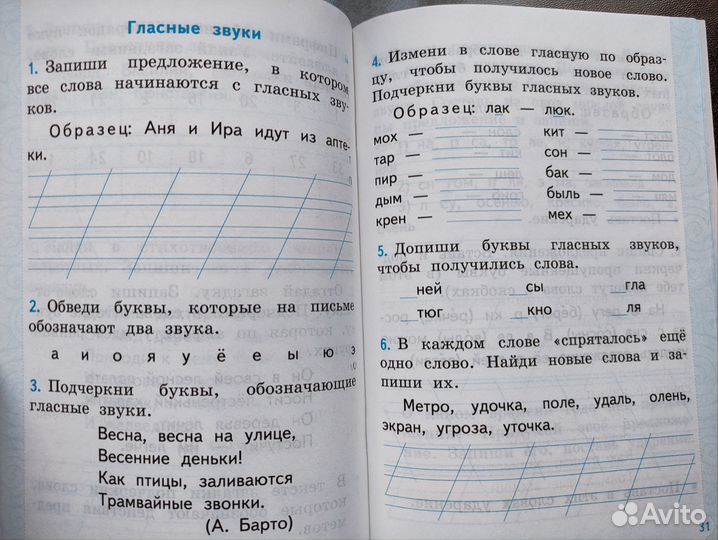 Гласные звуки
1. Запиши предложение, в котором
все слова начинаются с гласных зву-
ков.
Образец: Аня и Ира идут из апте-
ки.
2. Обведи буквы, которые на письме
обозначают два звука.
а и о я у ё е ы ю э
3. Подчеркни буквы, обозначающие
гласные звуки.
Весна, весна на улице,
Весенние деньки!
Как птицы, заливаются
Трамвайные звонки.
(А. Барто)
4. Измени в слове гласную по образ-
цу, чтобы получилось новое слово.
Подчеркни буквы гласных звуков.
Образец: лак — люк.
мох — кит —
тар — сон —
пир — бак —
дым — быль —
крен — мех —
5. Допиши буквы гласных звуков,
чтобы получились слова.
__ней __сы __гла
__тюг __кно __ля
6. В каждом слове «спряталось» ещё
одно слово. Найди новые слова и за-
пиши их.
Метро, удочка, поле, удаль, олень,
экран, угроза, уточка.
31
Avito